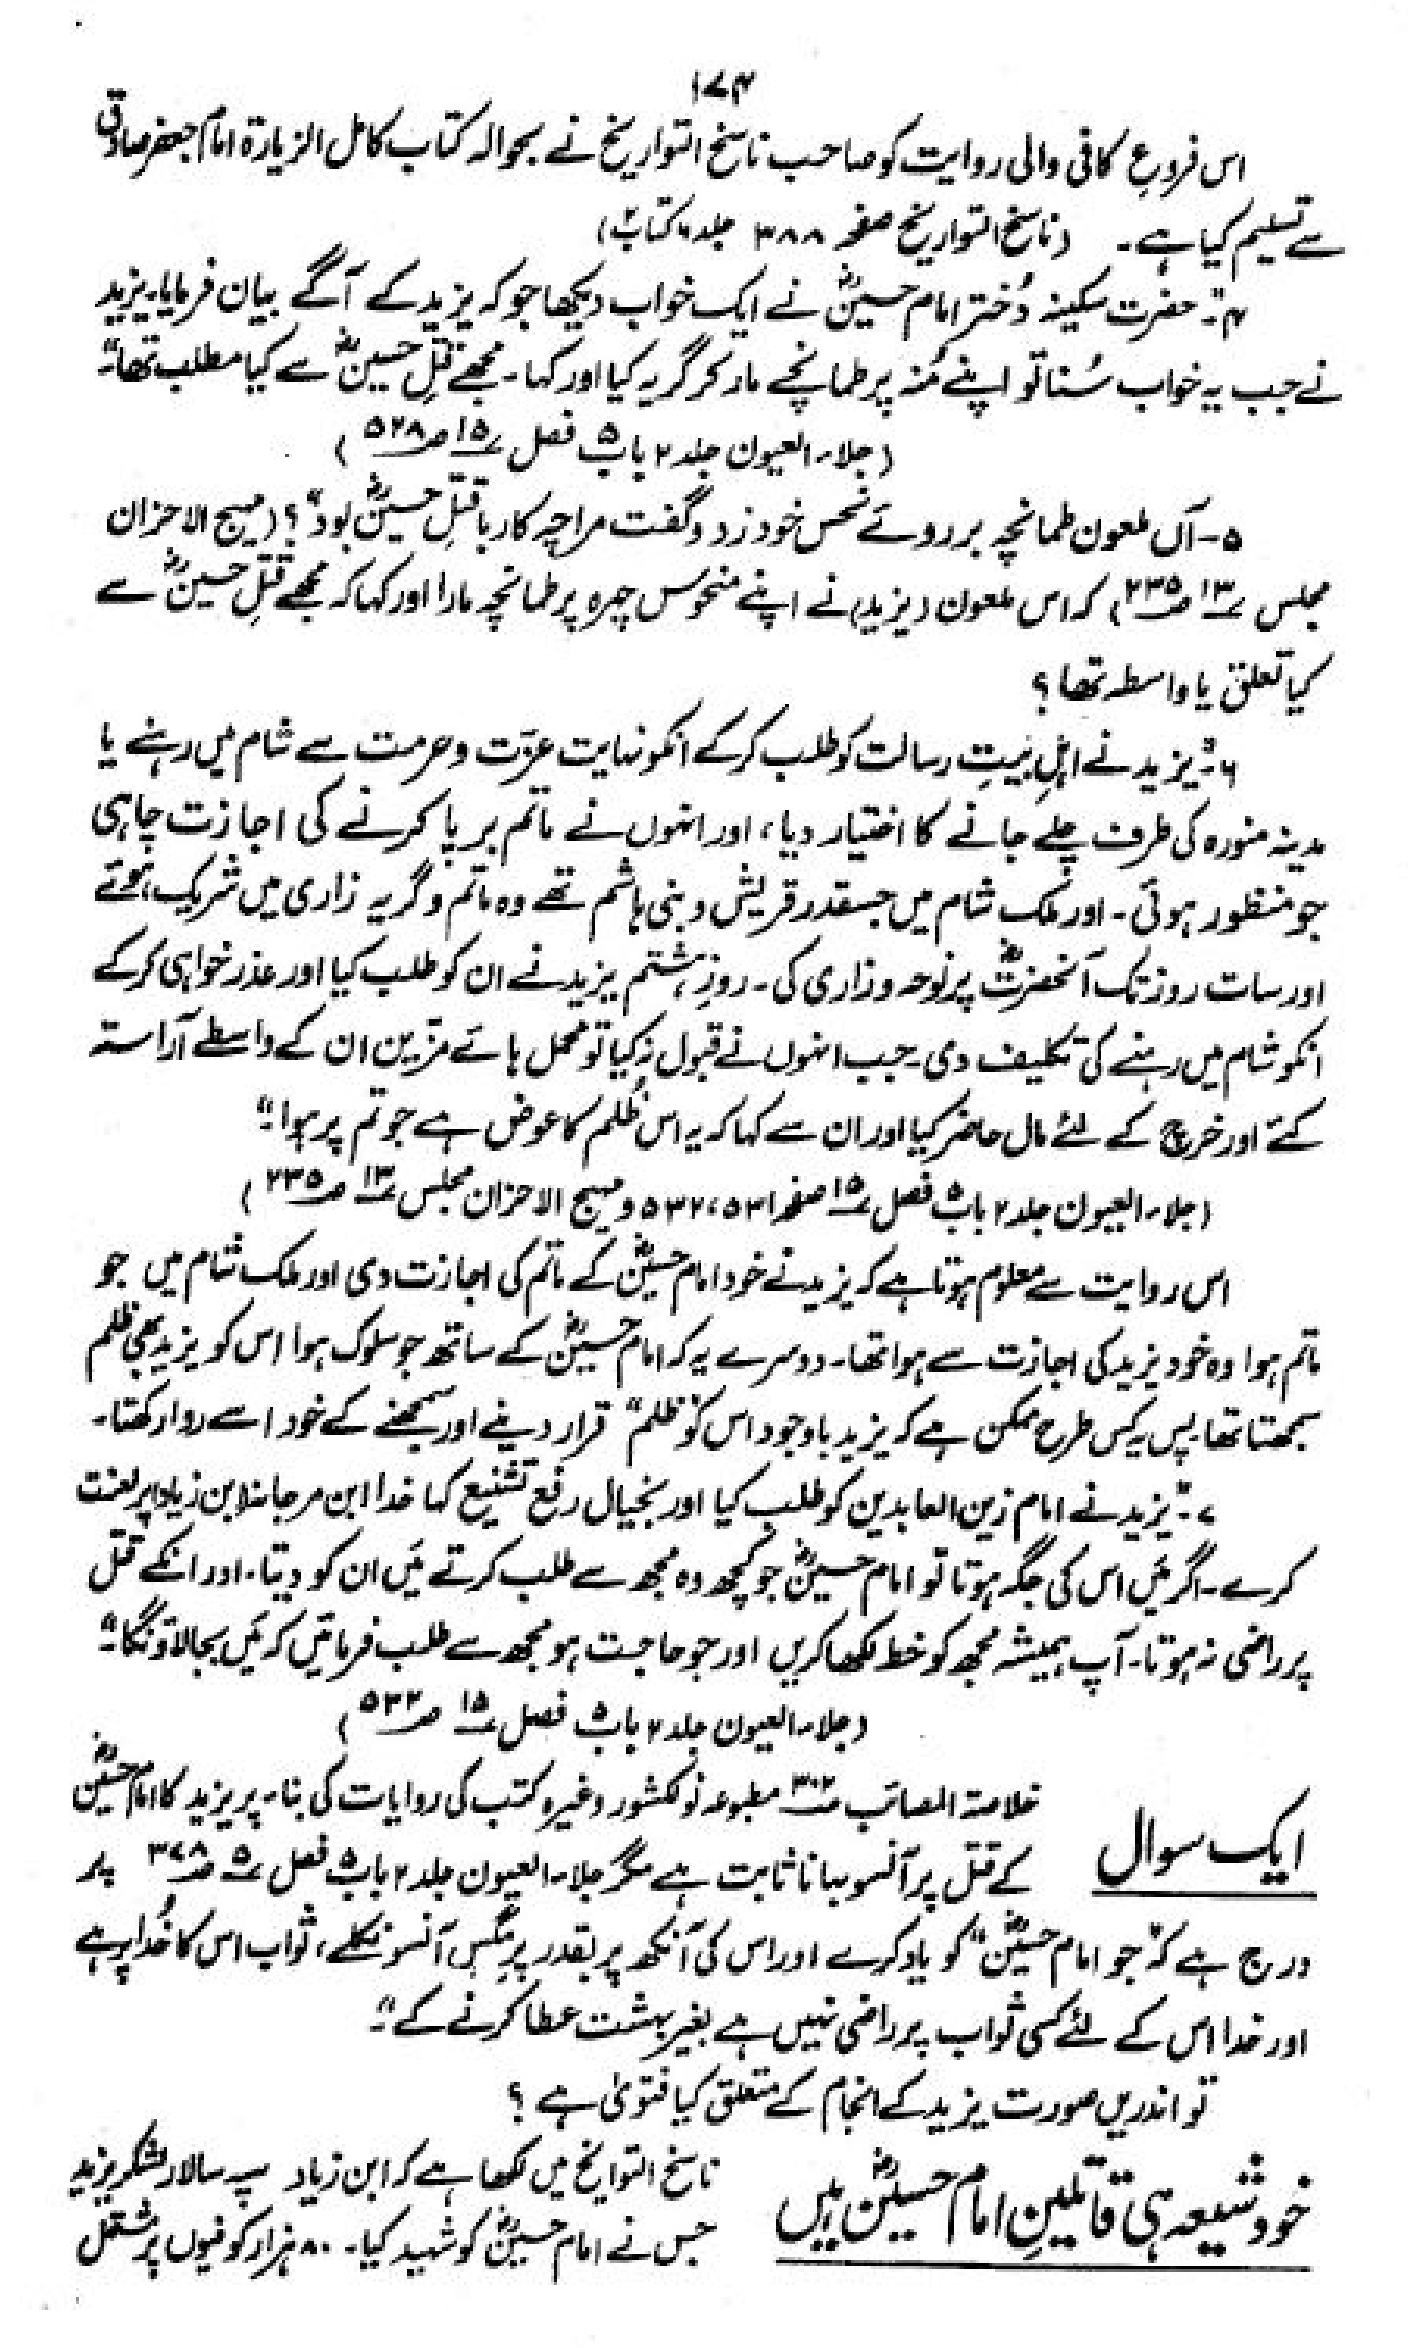 ۱۷۴
اس فروعِ کافی والی روایت کو صاحب ناسخ التواریخ نے بحوالہ کتاب کامل الزیارۃ امام جعفر صادق
سے تسلیم کیا ہے۔ (ناسخ التواریخ صفحہ ۳۸۸ جلد ۶ کتاب ۲)
۴۔ "حضرت سکینہ دُختر امام حسینؓ نے ایک خواب دیکھا جو کہ یزید کے آگے بیان فرمایا۔ یزید
نے جب یہ خواب سُنا تو اپنے مُنہ پر طمانچے مار کر گریہ کیا اور کہا۔ مجھے قتلِ حسینؓ سے کیا مطلب تھا"۔
(جلاء العیون جلد ۲ باب ۵ فصل ۱۵ ص ۵۲۸)
۵۔ آں ملعون طمانچہ بر روئے نحس خود زد و گفت مراچہ کار با قتلِ حسینؓ بود"؟ (مہیج الاحزان
مجلس ۱۳ ص ۲۳۵) کہ اس ملعون (یزید) نے اپنے منحوس چہرہ پر طمانچہ مارا اور کہا کہ مجھے قتلِ حسینؓ سے
کیا تعلق یا واسطہ تھا؟
۶۔ "یزید نے اہلِ بیتِ رسالت کو طلب کر کے انکو نہایت عزّت و حرمت سے شام میں رہنے یا
مدینہ منورہ کی طرف چلے جانے کا اختیار دیا، اور انہوں نے ماتم برپا کرنے کی اجازت چاہی
جو منظور ہوئی۔ اور ملک شام میں جسقدر قریش و بنی ہاشم تھے وہ ماتم و گریہ زاری میں شریک ہوئے
اور سات روز تک آنحضرتؓ پر نوحہ و زاری کی۔ روزِ ہشتم یزید نے ان کو طلب کیا اور عذر خواہی کر کے
انکو شام میں رہنے کی تکلیف دی۔ جب انہوں نے قبول نہ کیا تو محمل ہائے مزّین ان کے واسطے آراستہ
کئے اور خرچ کے لئے مال حاضر کیا اور ان سے کہا کہ یہ اس ظلم کا عوض ہے جو تم پر ہوا۔"
(جلاء العیون جلد ۲ باب ۵ فصل ۱۵ صفحہ ۵۳۱، ۵۳۲ و مہیج الاحزان مجلس ۱۳ ص ۲۳۵)
اس روایت سے معلوم ہوتا ہے کہ یزید نے خود امام حسینؓ کے ماتم کی اجازت دی اور ملک شام میں جو
ماتم ہوا وہ خود یزید کی اجازت سے ہوا تھا۔ دوسرے یہ کہ امام حسینؓ کے ساتھ جو سلوک ہوا اس کو یزید بھی ظلم
سمجھتا تھا۔ پس یہ کس طرح ممکن ہے کہ یزید باوجود اس کو "ظلم" قرار دینے اور سمجھنے کے خود اسے روا رکھتا۔
۷۔ "یزید نے امام زین العابدین کو طلب کیا اور بخیال رفع تشنیع کہا خدا ابن مرجانہ (ابن زیاد) پر لعنت
کرے۔ اگر مَیں اس کی جگہ ہوتا تو امام حسینؓ جو کچھ وہ مجھ سے طلب کرتے مَیں ان کو دیتا۔ اور انکے قتل
پر راضی نہ ہوتا۔ آپ ہمیشہ مجھ کو خط لکھا کریں اور جو حاجت ہو مجھ سے طلب فرمائیں کہ مَیں بجا لاؤنگا"۔
(جلاء العیون جلد ۲ باب ۵ فصل ۱۵ ص ۵۳۲)
ایک سوال
خلاصۃ المصائب ص ۳۰۲ مطبوعہ نولکشور وغیرہ کتب کی روایات کی بناء پر یزید کا امام حسینؓ
کے قتل پر آنسو بہانا ثابت ہے مگر جلاء العیون جلد ۲ باب ۵ فصل ۵ ص ۳۷۸ پر
درج ہے کہ "جو امام حسینؓ" کو یاد کرے اور اس کی آنکھ پر بقدر پرِ مگس آنسو نکلے، ثواب اس کا خُدا پر ہے
اور خدا اس کے لئے کسی ثواب پر راضی نہیں ہے بغیر بہشت عطا کرنے کے"۔
تو اندریں صورت یزید کے انجام کے متعلق کیا فتویٰ ہے ؟
خود شیعہ ہی قاتلینِ امام حسینؓ ہیں
ناسخ التواریخ میں لکھا ہے کہ ابن زیاد سپہ سالار لشکر یزید
جس نے امام حسینؓ کو شہید کیا۔ ۸۰ ہزار کوفیوں پر مشتمل